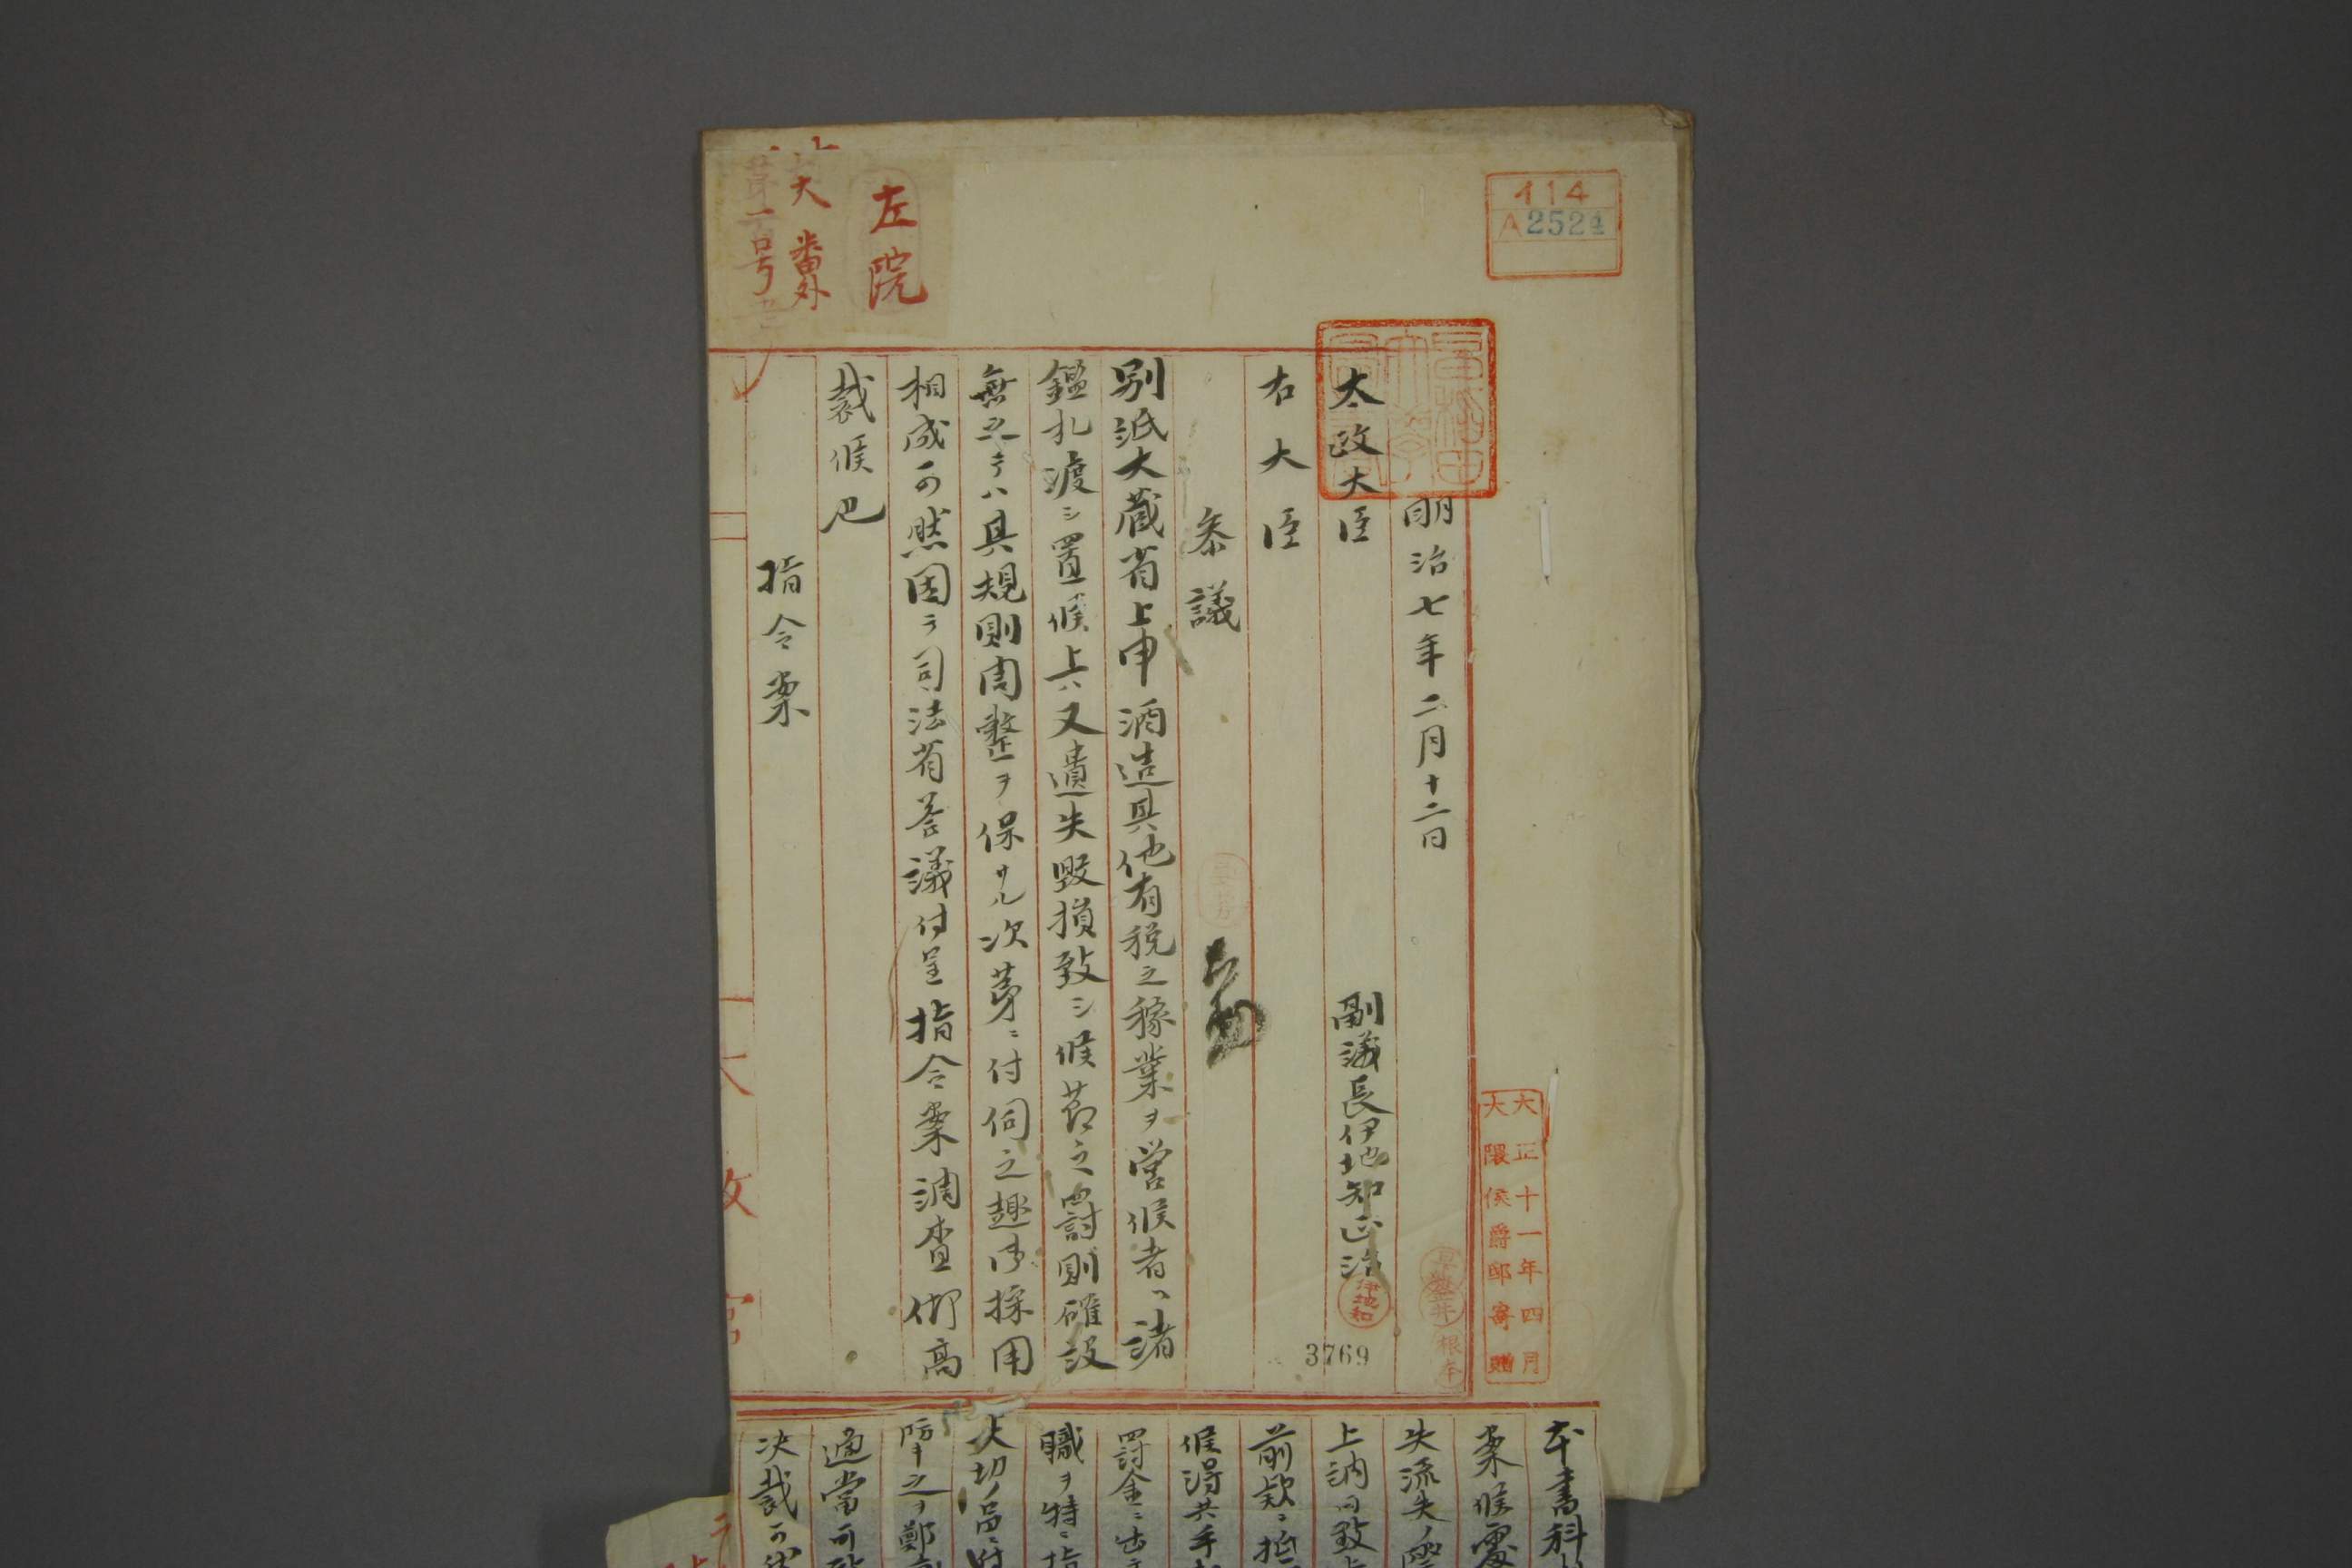 414
A2524
左院
大番外
第一号
明治七年二月十二日
太政大臣
副議長伊地知正治
伊地知
右大臣
参議
別紙大蔵省上申酒造其他有税之稼業ヲ営候者ヘ諸
鑑札渡シ置候上ハ又遺失毀損致シ候節之罰則確設
無之テハ其規則周整ヲ保サル次第ニ付伺之趣御採用
相成可然因テ司法省答議付呈指令案調査仰高
裁候也
指令案
大正十一年四月
大隈侯爵邸寄贈
3769
根本
本書科
案候処
失流失ノ
上納
前欵ニ
候得共
罰金ニ
職ヲ特ニ
大切
防キ之ヲ
適当可
決裁可